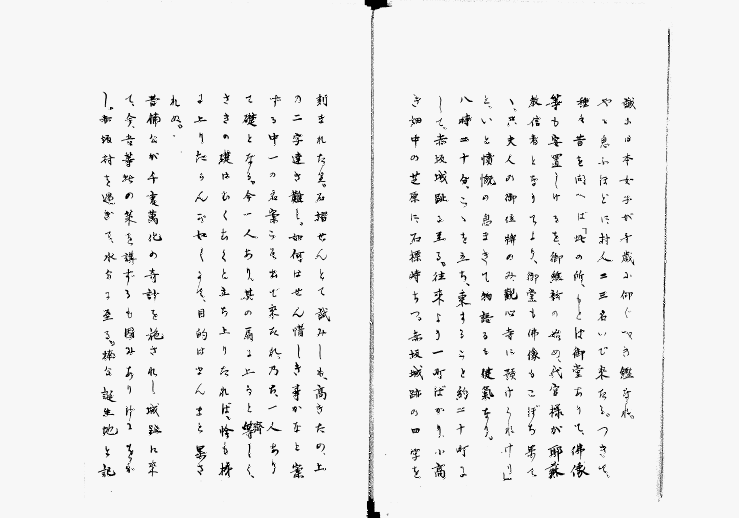 誠に日本女子が千歳に仰ぐべき鑑なれ。
やゝ憩ふほどに村人二三名いで来たる。つきて、
種々昔を問へば「此の所、もとは御堂ありて、佛像
等も安置しけるを、御維新の始め、代官様が耶蘇
教信者となりてより、御堂も佛像もこぼち果て
、只夫人の御位牌のみ觀心寺に預けられけり」
と、いと慷慨の息まきて物語るも健氣なり。
八時二十分、こゝを立ち、東すること約二十町に
して、赤坂城趾に至る。往来より一町ばかり、小高
き畑中の芝原に石標峙ちつ。赤坂城跡の四字を
刻まれたり。石摺せんとて試みしも、高きため、上
の二字達き難し。如何はせん惜しき事かなと案
ずる中一の名案こそ出で来たれ、乃ち、一人あり
て礎となる。今一人あり、其の肩に上らうと齊等しく、
さきの礎はむくむくと立ち上りたれば、怪も梯
に上りたらんが如くよそ、目的はまんまと果さ
れぬ。
昔楠公が千変萬化の奇計を施されし城趾に来
て、今、吾等此の策を講ずるも因みありける
し。赤坂村を過ぎて、水分に至る。楠公誕生地と記